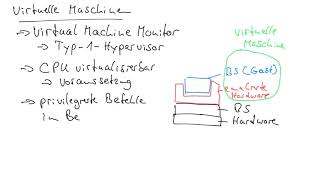 Virtuelle Maschine
→ Virtual Machine Monitor
→ Typ-1-Hypervisor
→ CPU virtualisierbar
→ Voraussetzung
→ privilegierte Befehle
im Be
virtuelle
Maschine
BS (Gast)
Hardware
BS
Hardware